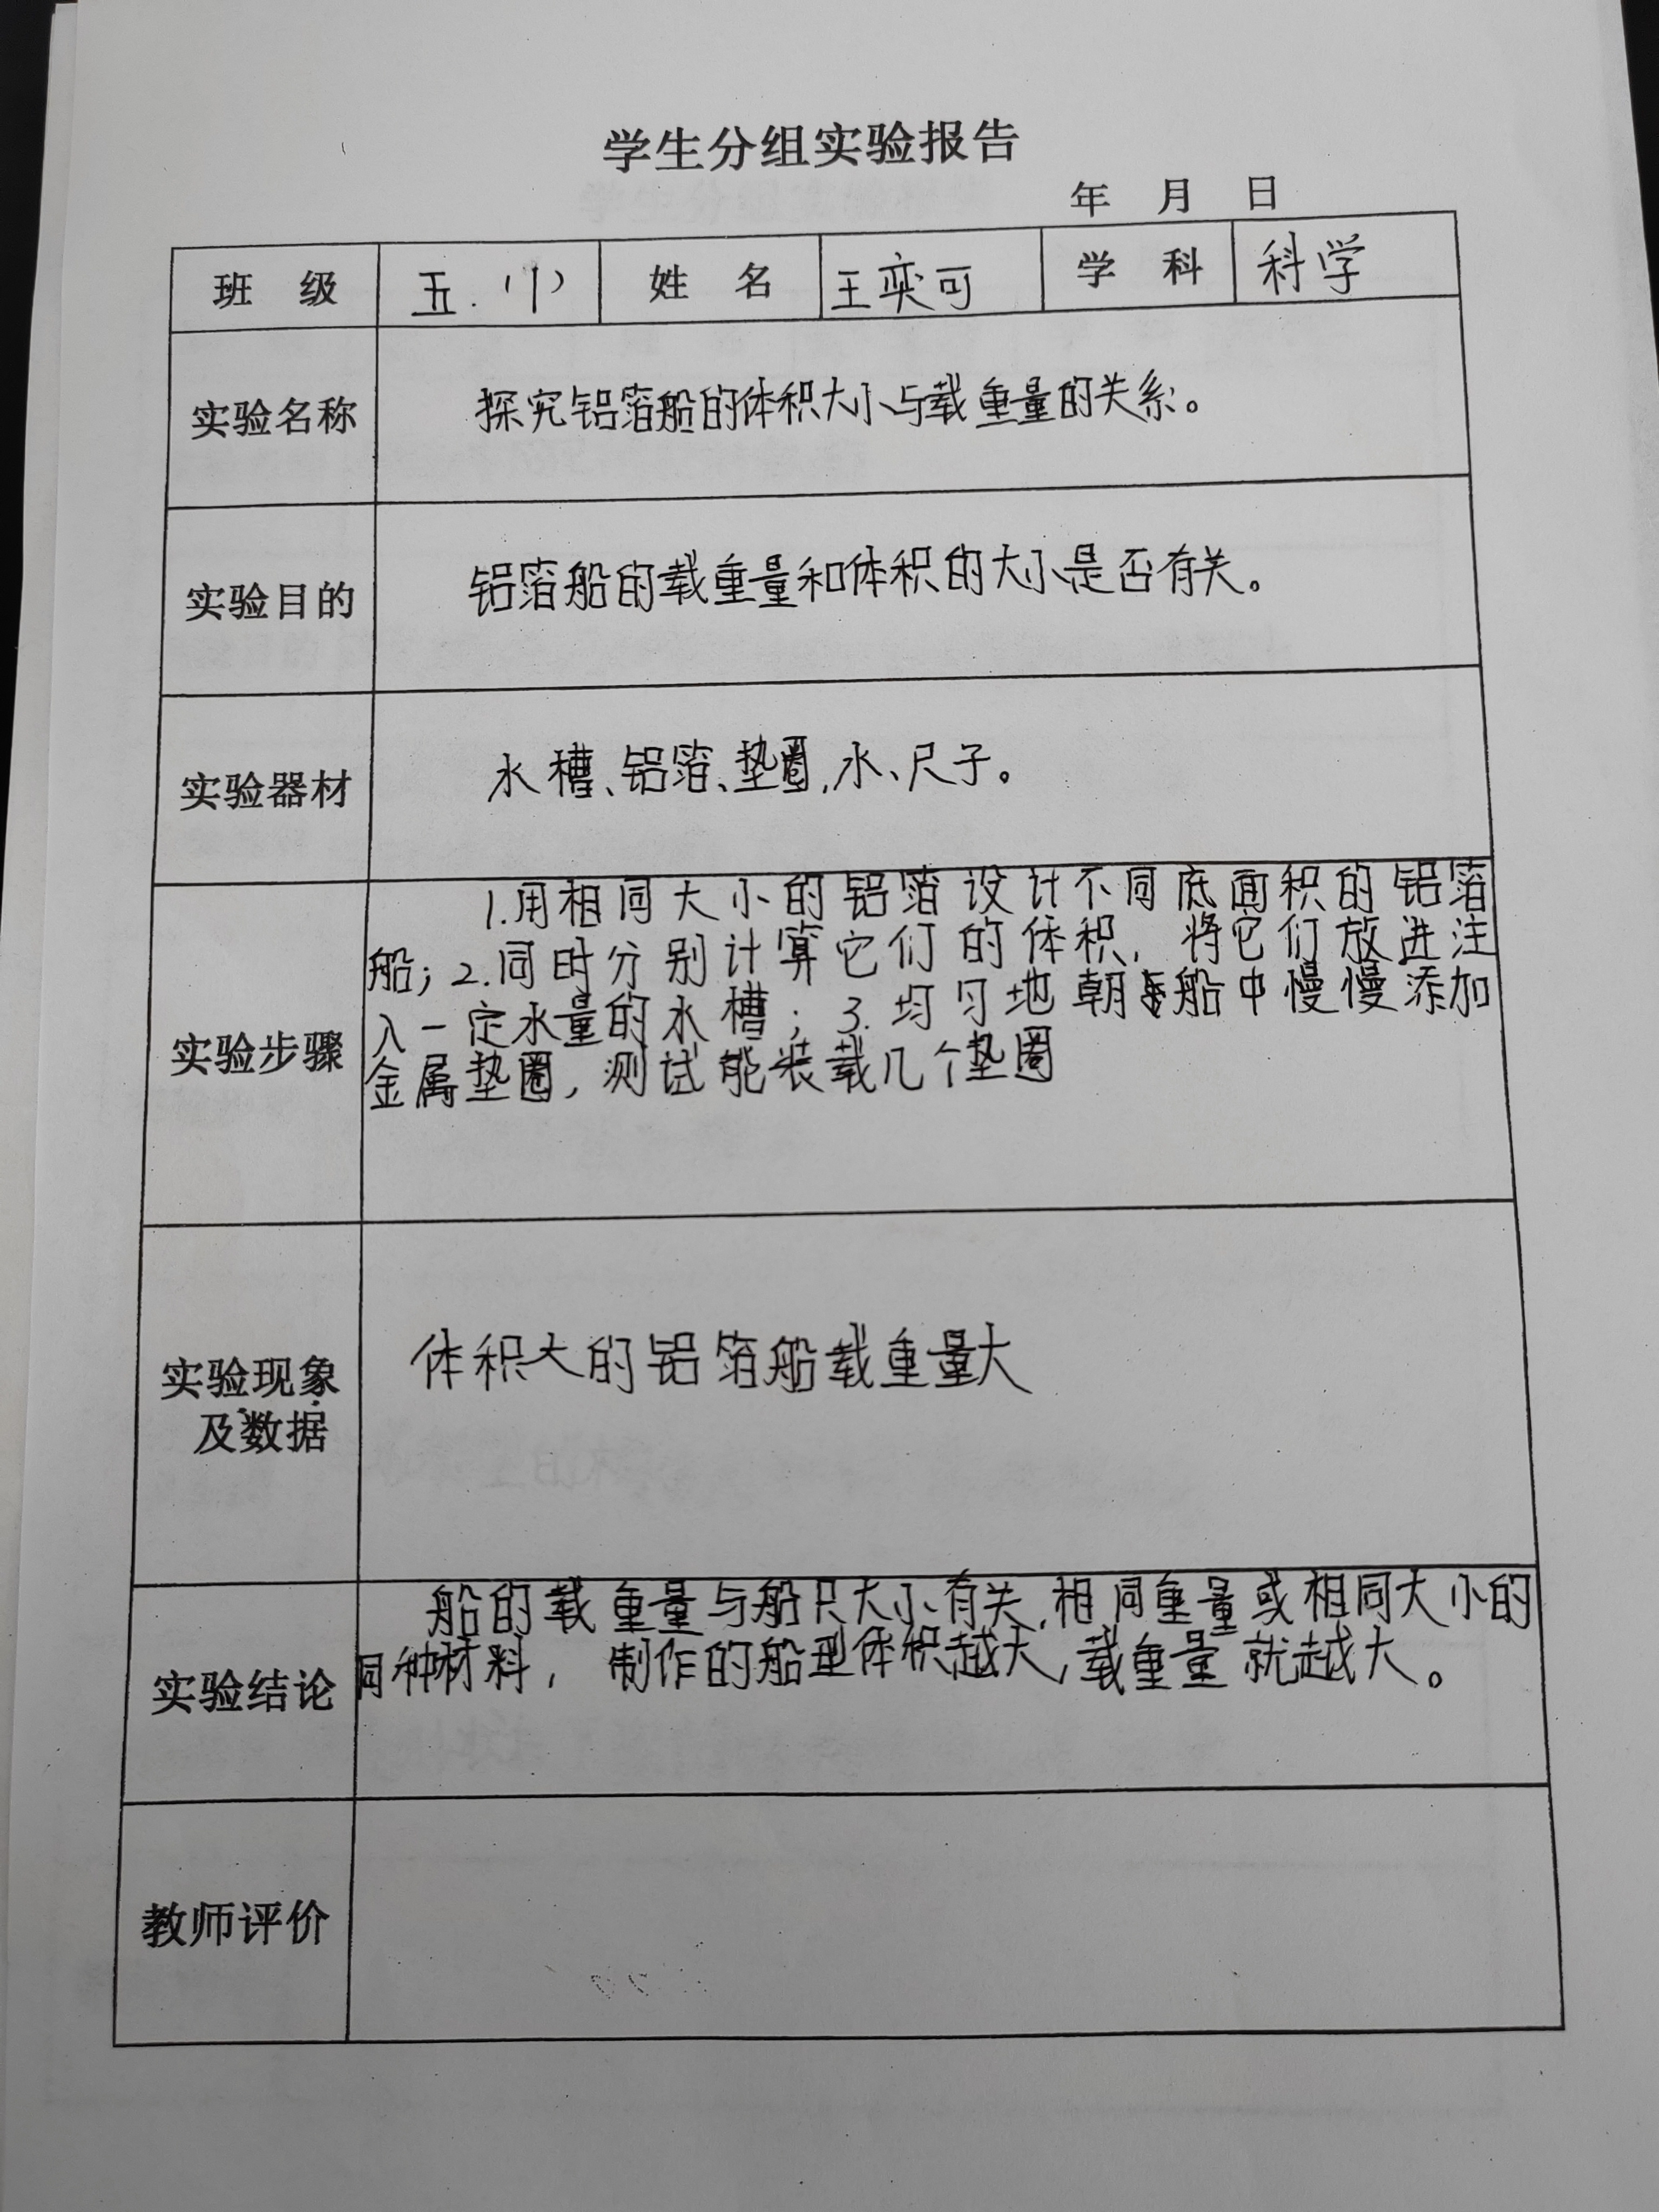 学生分组实验报告
年 月 日
班 级 五.(1) 姓 名 王奕可 学 科 科学
实验名称 探究铝箔船的体积大小与载重量的关系。
实验目的 铝箔船的载重量和体积的大小是否有关。
实验器材 水槽、铝箔、垫圈,水、尺子。
实验步骤
1.用相同大小的铝箔设计不同底面积的铝箔
船;2.同时分别计算它们的体积,将它们放进注
入一定水量的水槽;3.均匀地朝船中慢慢添加
金属垫圈,测试能装载几个垫圈
实验现象
及数据
体积大的铝箔船载重量大
实验结论
船的载重量与船只大小有关,相同重量或相同大小的
同种材料,制作的船型体积越大,载重量就越大。
教师评价